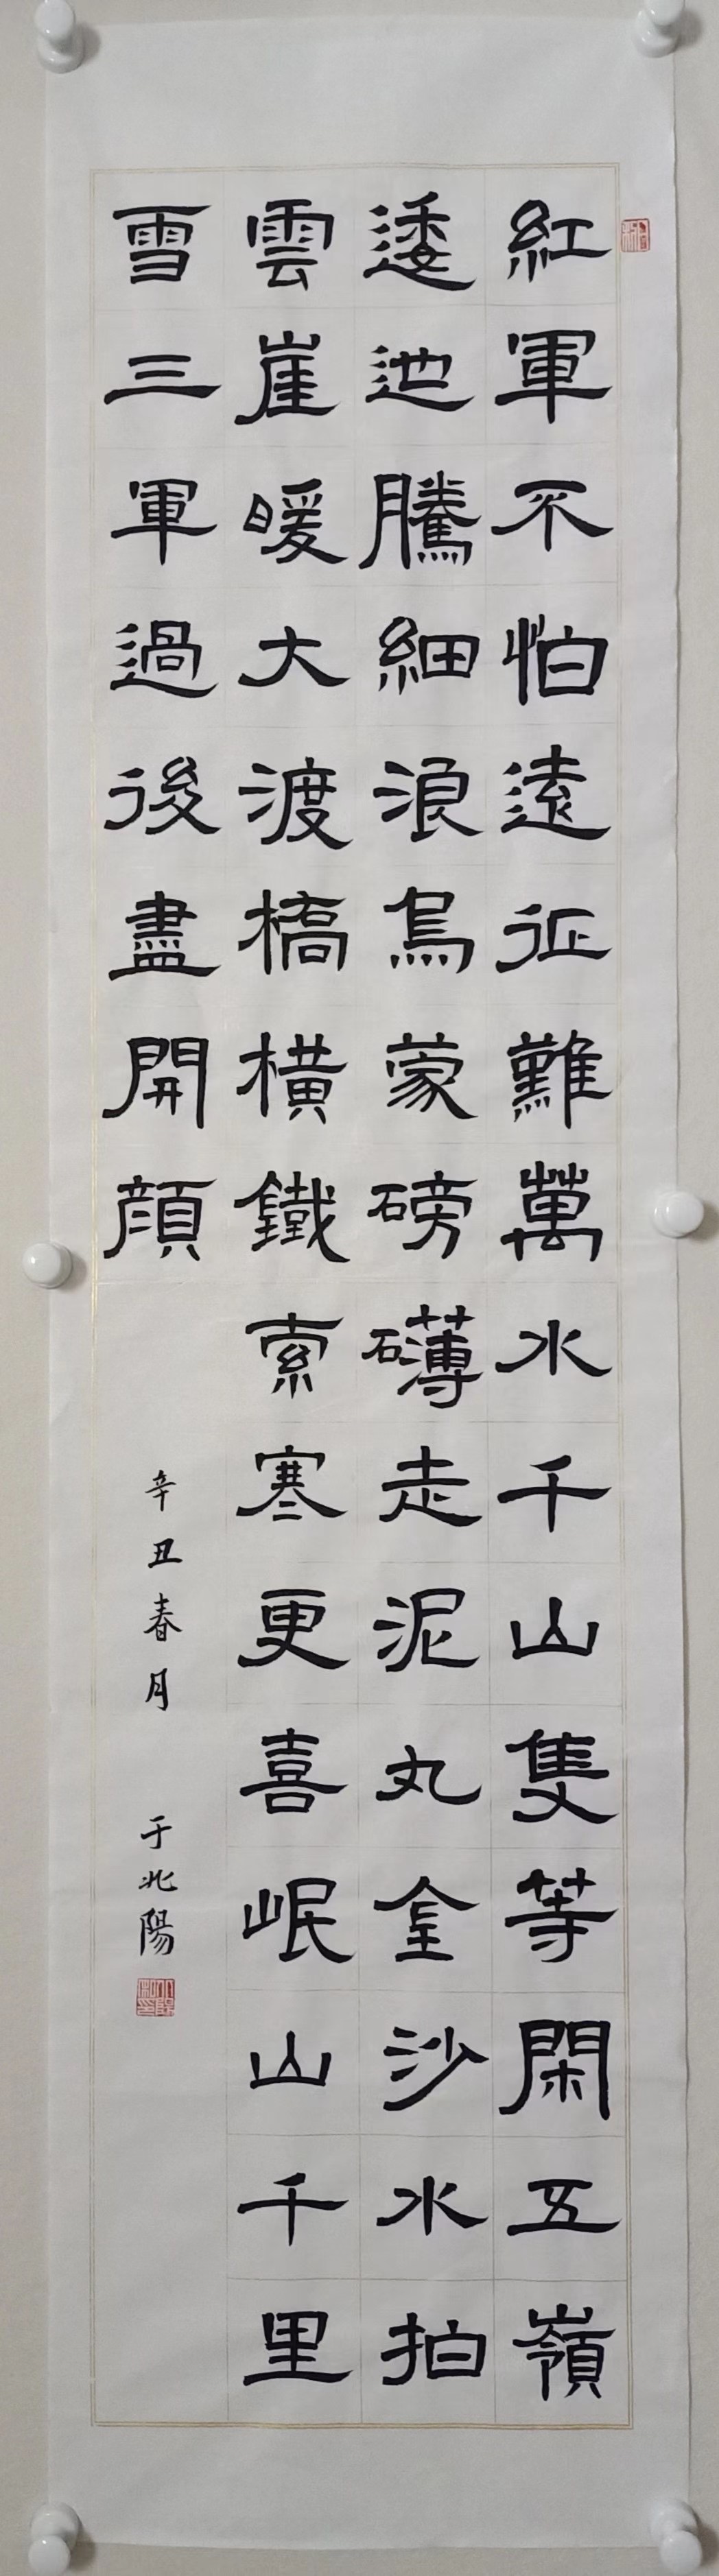 紅軍不怕遠征難萬水千山隻等閑五嶺
逶迤騰細浪烏蒙磅礴走泥丸金沙水拍
雲崖暖大渡橋橫鐵索寒更喜岷山千里
雪三軍過後盡開顔
辛丑春月 于北陽